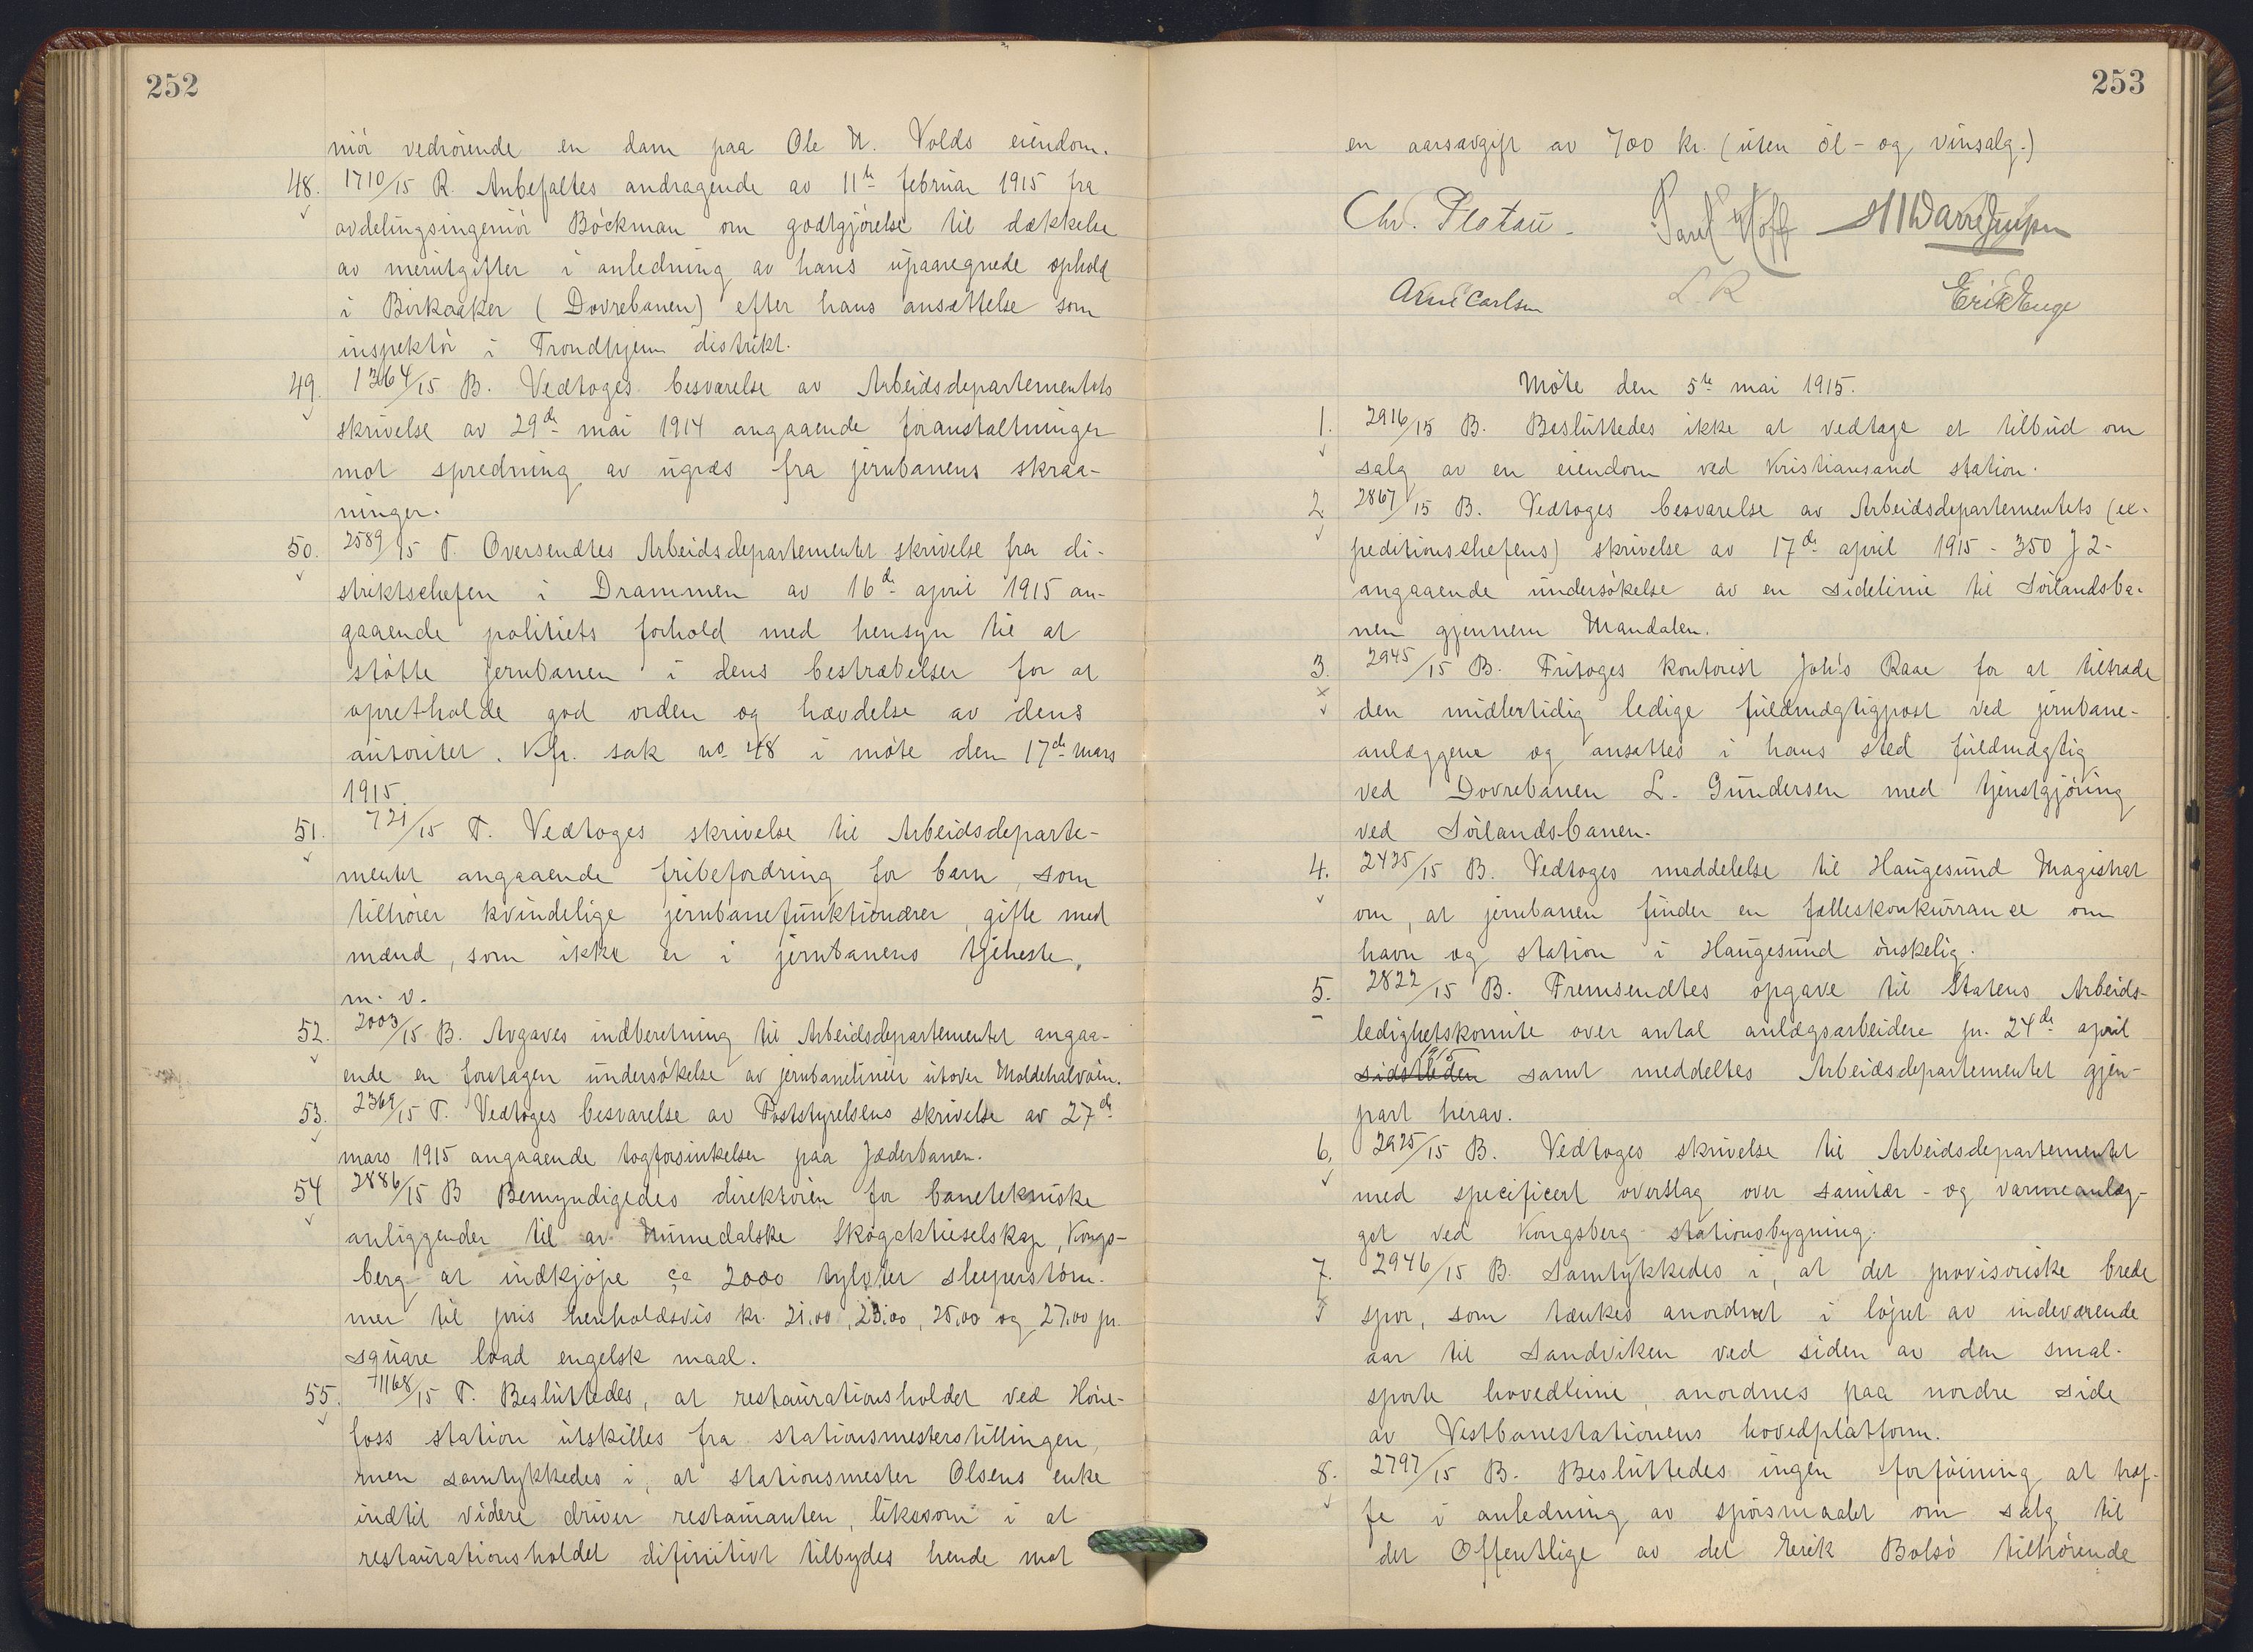 252
niør vedrørende en dam paa Ole N. Volds eiendom.
48. 1710/15 R. Anbefaltes andragende av 11te februar 1915 fra
avdelingsingeniør Böckman om godtgjørelse til dækkelse
av merutgifter i anledning av hans upaaregnede ophold
i Birkaaker (Dovrebanen) efter hans ansættelse som
inspektør i Trondhjem distrikt.
49. 1364/15 B. Vedtoges besvarelse av Arbeidsdepartementets
skrivelse av 29de mai 1914 angaaende foranstaltninger
mot spredning av ugræs fra jernbanens skraa-
ninger.
50. 2589/15 T. Oversendtes Arbeidsdepartementet skrivelse fra di-
striktschefen i Drammen av 16de april 1915 an-
gaaende politiets forhold med hensyn til at
støtte jernbanen i dens bestræbelser for at
opretholde god orden og hævdelse av dens
autoritet. Kfr. sak no 48 i møte den 17de mars
1915.
51. 721/15 T. Vedtoges skrivelse til Arbeidsdeparte-
mentet angaaende fribefordring for barn, som
tilhører kvindelige jernbanefunktionærer, gifte med
mænd, som ikke er i jernbanens tjeneste,
m. v.
52. 2003/15 B. Avgaves indberetning til Arbeidsdepartementet angaa-
ende en foretagen undersøkelse av jernbanelinier utover Moldehalvøen.
53. 2369/15 T. Vedtoges besvarelse av Poststyrelsens skrivelse av 27de
mars 1915 angaaende togforsinkelser paa Jæderbanen.
54 2886/15 B Bemyndigedes direktøren for banetekniske
anliggender til av Numedalske Skogaktieselskap, Kongs-
berg at indkjøpe ca 2000 tylvter sleeperstøm-
mer til pris henholdsvis kr. 21,00, 23,00, 25,00 og 27,00 pr.
square load engelsk maal.
55. 1168/15 T. Besluttedes, at restaurationsholdet ved Høne-
foss station utskilles fra stationsmesterstillingen,
men samtykkedes i, at stationsmester Olsens enke
indtil videre driver restauranten, likesom i at
restaurationsholdet difinitivt tilbydes hende mot
253
en aarsavgift av 700 kr. (uten øl- og vinsalg.)
Chr. Platou Paul Hoff
Arne Carlsen L. R Erik Enge
Møte den 5te mai 1915.
1. 2916/15 B. Besluttedes ikke at vedtage et tilbud om
salg av en eiendom ved Kristiansand station.
2 2867/15 B. Vedtoges besvarelse av Arbeidsdepartementets (ex-
peditionschefens) skrivelse av 17de april 1915 - 350 J 2 -
angaaende undersøkelse av en sidelinie til Sørlandsba-
nen gjennem Mandalen.
3. 2945/15 B. Fritoges kontorist Joh's Raae for at tiltræde
den midlertidig ledige fuldmægtigpost ved jernbane-
anlæggene og ansattes i hans sted fuldmægtig
ved Dovrebanen L. Gundersen med tjenstgjøring
ved Sørlandsbanen.
4. 2425/15 B. Vedtoges meddelelse til Haugesund Magistrat
om, at jernbanen finder en fælleskonkurranse om
havn og station i Haugesund ønskelig.
5. 2822/15 B. Fremsendtes opgave til Statens Arbeids-
ledighetskomite over antal anlægsarbeidere pr. 24de april
1915
sidstleden samt meddeltes Arbeidsdepartementet gjen-
part herav.
6. 2925/15 B. Vedtoges skrivelse til Arbeidsdepartementet
med specificert overslag over sanitær- og varmeanlæg-
get ved Kongsberg stationsbygning.
7. 2946/15 B. Samtykkedes i, at det provisoriske brede
spor, som tænkes anordnet i løpet av indeværende
aar til Sandviken ved siden av den smal-
sporte hovedlinie, anordnes paa nordre side
av Vestbanestationens hovedplatform.
8. 2797/15 B. Besluttedes ingen forføining at træf-
fe i anledning av spørsmaalet om salg til
det Offentlige av det Eerik Bolsø tilhørende